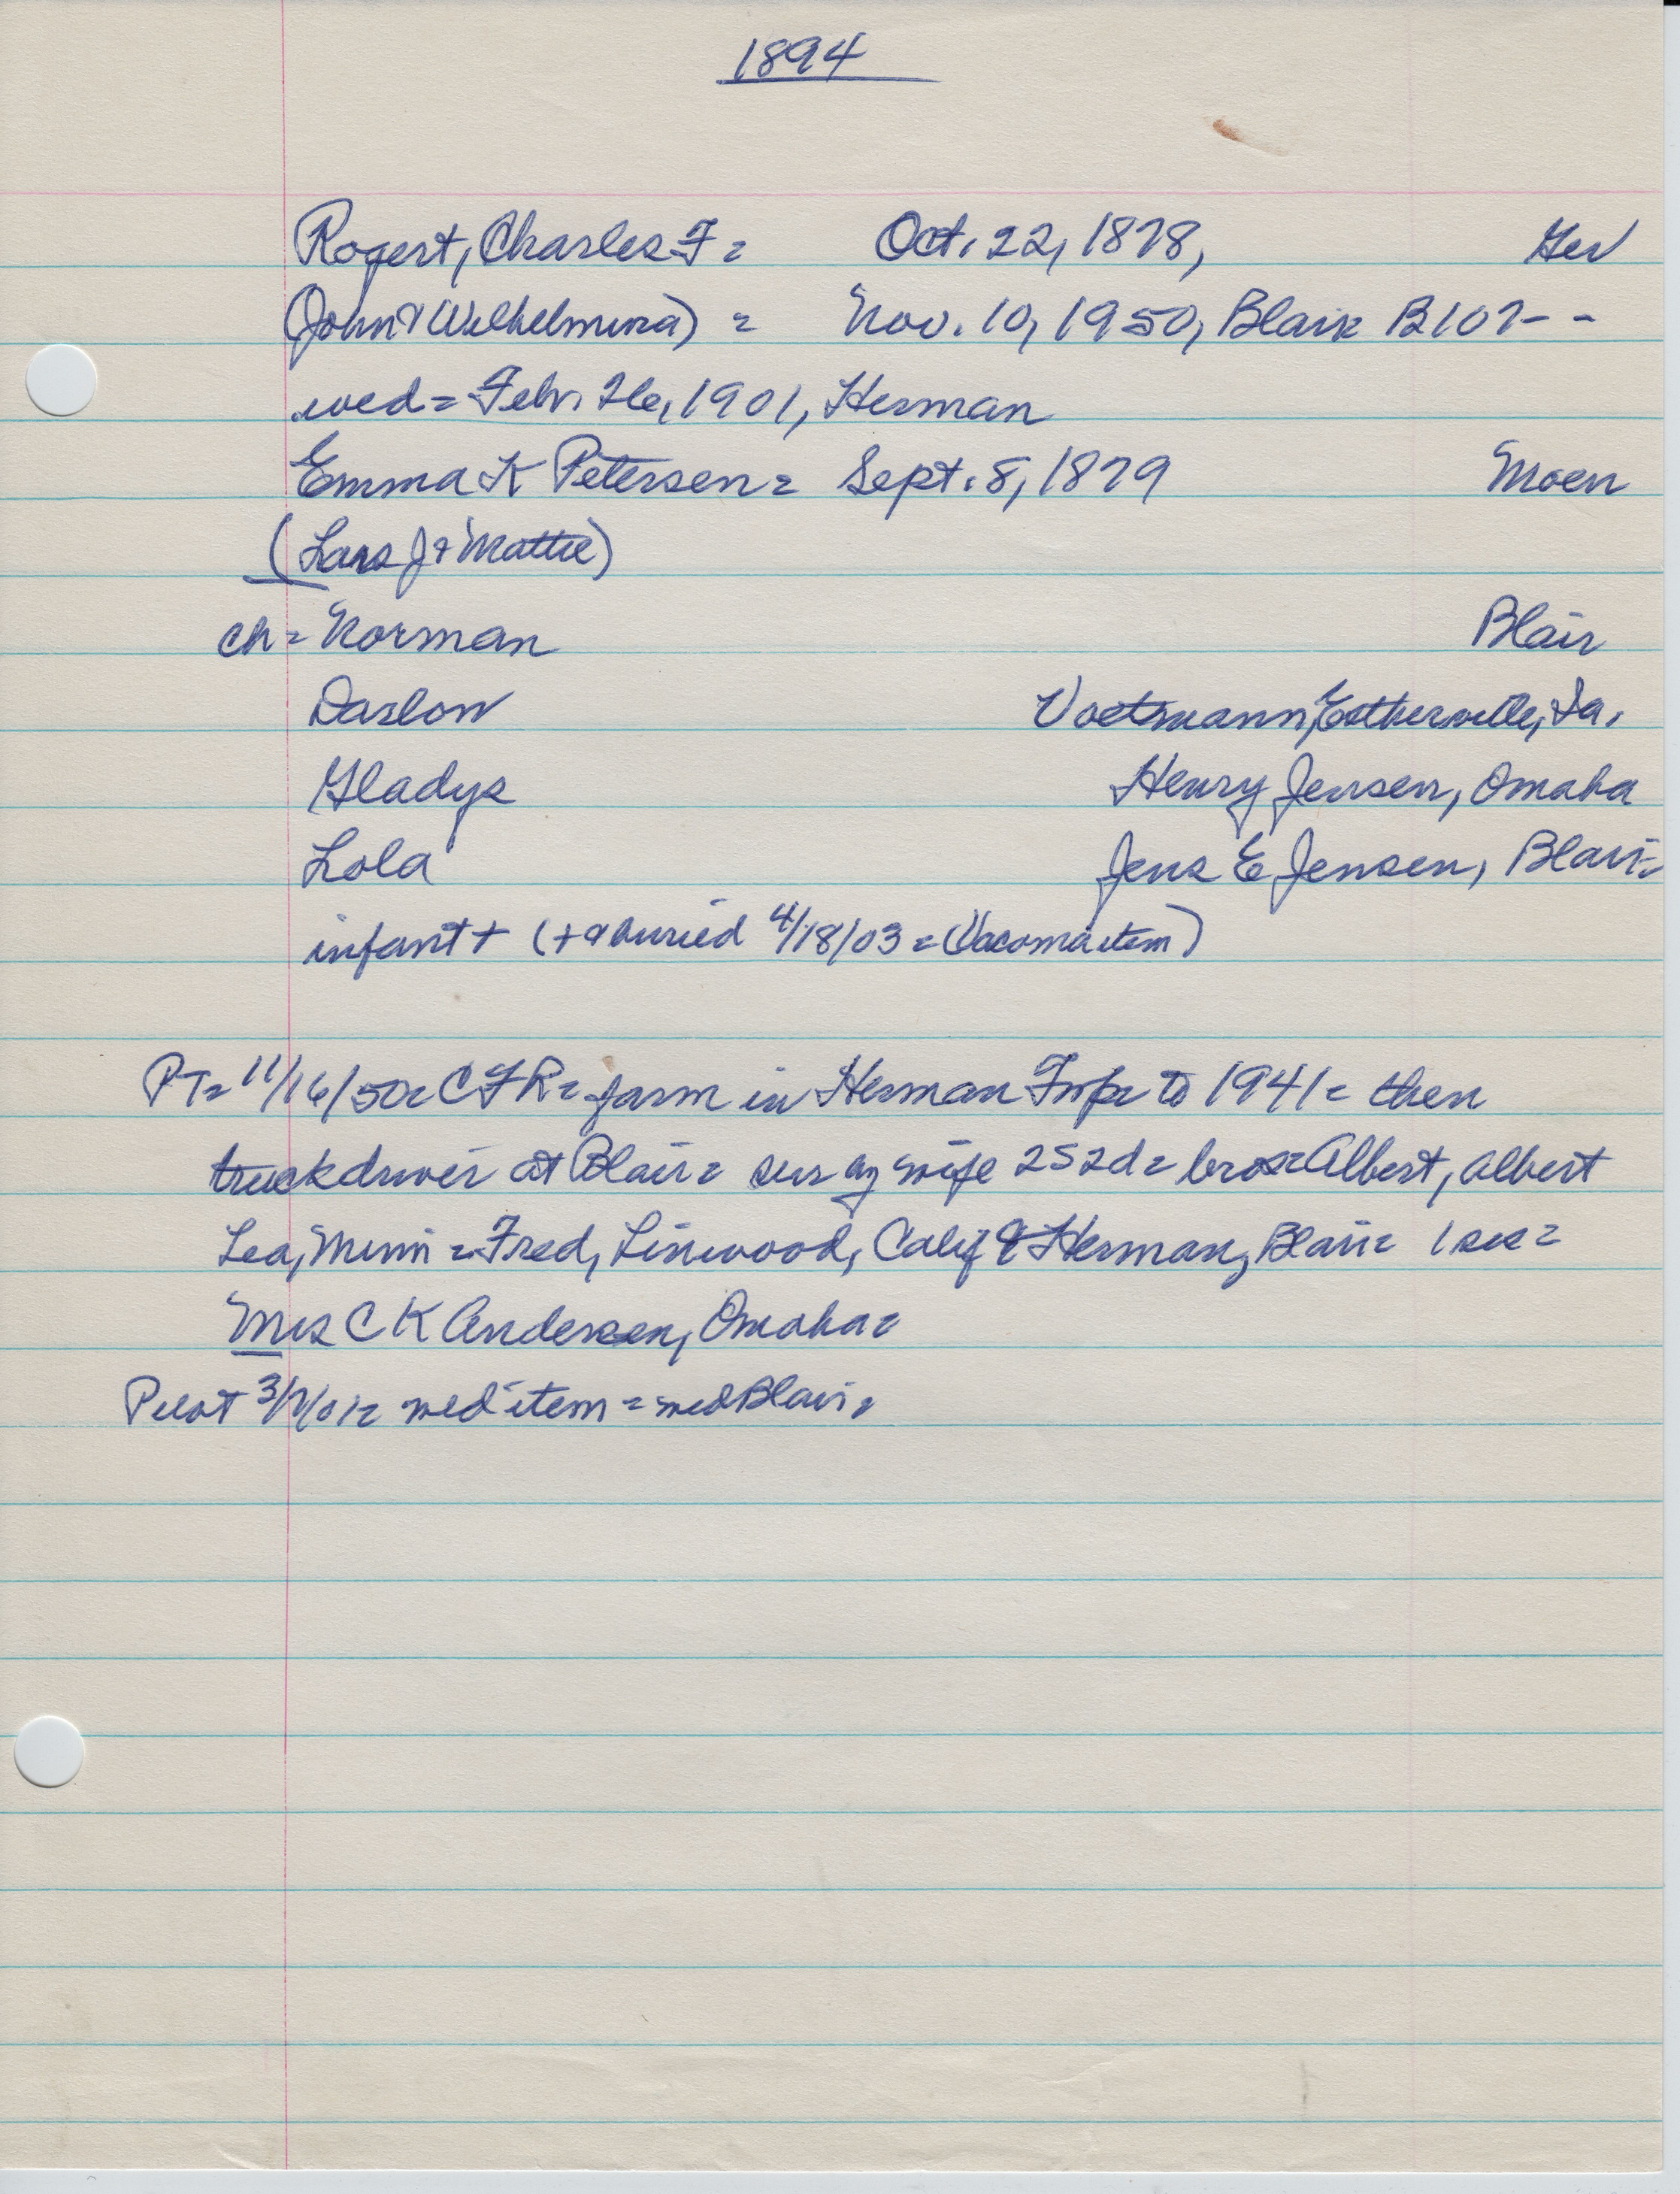 1894
Rogert, Charles F = Oct. 22, 1878, Ger
(John & Wilhelmina) = Nov. 10, 1950, Blair B107--
wed = Febr. 26, 1901, Herman
Emma K Petersen = Sept. 8, 1879 Moen
(Lars J & Mattie)
ch = Norman Blair
Darlow Voetmann, Estherville, Ia.
Gladys Henry Jensen, Omaha
Lola Jens E Jensen, Blair =
infant + (+ & buried 4/18/03 = Vacoma item)
PT = 11/16/50 = C F R = farm in Herman Twp = to 1941 = then
truckdriver at Blair = sur by wife 2S 2d = bros = Albert, Albert
Lea, Minn = Fred, Linwood, Calif & Herman, Blair = 1 sis =
Mrs C K Andersen, Omaha =
Pilot 3/7/01 = wed item = wed Blair =